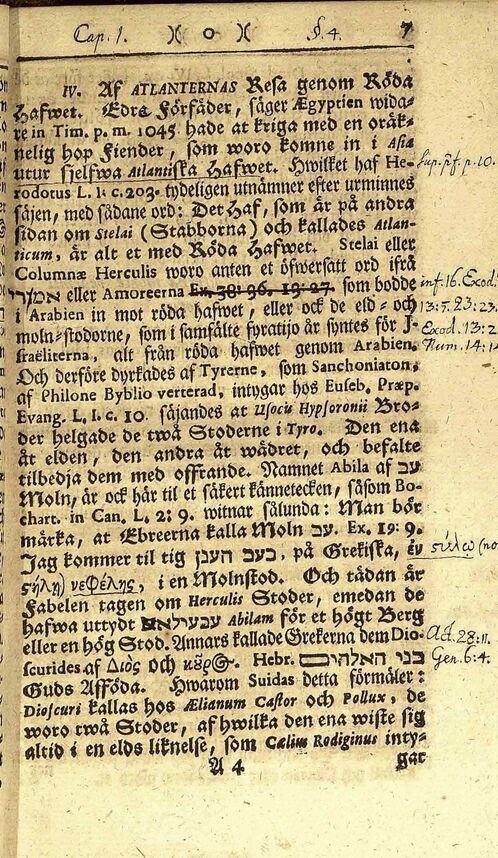 Cap. 1. )( o )( §. 4. 7
IV. Af ATLANTERNAS Resa genom Röda
Hafwet. Edra Förfäder, säger Ægyptien wida-
re in Tim. p. m. 1045. hade at kriga med en oräk-
nelig hop Fiender, som woro komne in i Asia
utur sjelfwa Atlantiska Hafwet. Hwilket haf He-
rodotus L. 1. c. 203. tydeligen utnämner efter urminnes
säjen, med sådane ord: Det Haf, som är på andra
sidan om Stelai (Stabborna) och kallades Atlan-
ticum, är alt et med Röda Hafwet. Stelai eller
Columnæ Herculis woro anten et öfwersatt ord ifrå
eller Amoreerna Ex. 38: 96. 13: 27. som bodde
i Arabien in mot röda hafwet, eller ock de eld- och
moln-stodorne, som i samfälte fyratijo år syntes för J-
sraëliterna, alt från röda hafwet genom Arabien.
Och derföre dyrkades af Tyrerne, som Sanchoniaton,
af Philone Byblio verterad, intygar hos Euseb. Præp.
Evang. L. 1. c. 10. säjandes at Usocus Hypsoronii Bro-
der helgade de twå Stoderne i Tyro. Den ena
åt elden, den andra åt wädret, och befalte
tilbedja dem med offrande. Namnet Abila af עב
Moln, är ock här til et säkert kännetecken, såsom Bo-
chart. in Can. L. 2: 9. witnar sälunda: Man bör
märka, at Ebreerna kalla Moln עב. Ex. 19: 9.
Jag kommer til tig בעב הענן, på Grekiska, ἐν
στήλῃ νεφέλης, i en Molnstod. Och tädan är
Fabelen tagen om Herculis Stoder, emedan de
hafwa uttydt Abilam för et högt Berg
eller en hög Stod. Annars kallade Grekerna dem Dio-
scurides af Διὸς och κῦρος. Hebr. בני האלהים
Guds Afföda. Hwarom Suidas detta förmäler:
Dioscuri kallas hos Ælianum Castor och Pollux, de
woro twå Stoder, af hwilka den ena wiste sig
altid i en elds liknelse, som Cælius Rodiginus inty-
A 4 gar
Sup. p. 10.
inf. 16. Exod.
13: 5. 23: 23.
Exod. 13: 2
Num. 14: 14
στύλῳ
Act. 28: 11.
Gen. 6: 4.